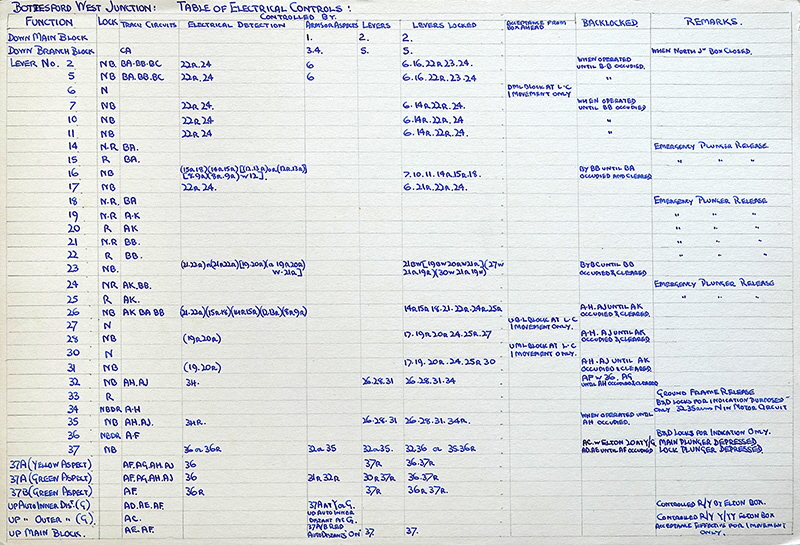 BOTTESFORD WEST JUNCTION: TABLE OF ELECTRICAL CONTROLS:
CONTROLLED BY.
FUNCTION LOCK TRACK CIRCUITS ELECTRICAL DETECTION ARMS OR ASPECTS LEVERS LEVERS LOCKED ACCEPTANCE FROM BOX AHEAD BACKLOCKED REMARKS.
DOWN MAIN BLOCK 1. 2. 2.
DOWN BRANCH BLOCK CA 3.4. 5. 5. WHEN NORTH Jn BOX CLOSED.
LEVER No. 2 NB. BA.BB.BC 22R.24 6 6.16.22R.23.24. WHEN OPERATED UNTIL B.B OCCUPIED.
5 NB BA.BB.BC 22R.24 6 6.16.22R.23.24 "
6 N DML BLOCK AT L-C 1 MOVEMENT ONLY
7 NB 22R.24. 6.14R.22R.24. WHEN OPERATED UNTIL BB OCCUPIED
10 NB 22R.24 6.14R.22R.24 "
11 NB 22R.24 6.14R.22R.24. "
14 N.R BA. EMERGENCY PLUNGER RELEASE
15 R BA. " " "
16 NB 7.10.11.14R.15R.18. BY BB UNTIL BA OCCUPIED AND CLEARED
17 NB 22R.24. 6.21R.22R.24.
18 N.R. BA EMERGENCY PLUNGER RELEASE
19 N.R A-K " " "
20 R AK " " "
21 N.R BB. " " "
22 R BB. " " "
23 NB. BY BC UNTIL BB OCCUPIED & CLEARED
24 NR AK.BB. EMERGENCY PLUNGER RELEASE
25 R AK. " " "
26 NB AK BA BB 14R15R.18.21.22R.24R.25R A.H. AJ UNTIL AK OCCUPIED & CLEARED.
27 N UBL BLOCK AT L-C 1 MOVEMENT ONLY.
28 NB (19R20R) 17.19R20R.24.25R.27 A-H. AJ UNTIL AK OCCUPIED & CLEARED
30 N UML BLOCK AT L-C 1 MOVEMENT ONLY.
31 NB (19.20R) 17.19.20R.24.25R 30 A.H.AJ UNTIL AK OCCUPIED & CLEARED
32 NB AH.AJ 34. 26.28.31 26.28.31.34 AF W 36. AG UNTIL AH OCCUPIED & CLEARED
33 R GROUND FRAME RELEASE
34 NBDR A-H B&D LOCKS FOR INDICATION PURPOSES ONLY. 32.35 IN MOTOR CIRCUIT
35 NB AH.AJ. 34R. 26.28.31 26.28.31.34R. WHEN OPERATED UNTIL AH OCCUPIED.
36 NBDR A-F B&D LOCKS FOR INDICATION ONLY.
37 NB 36 OR 36R 32 OR 35 32 OR 35. 32.36 OR 35.36R AC. W ELTON 20 AT Y/G AD.AE UNTIL AF OCCUPIED MAIN PLUNGER DEPRESSED LOCK PLUNGER DEPRESSED
37A (YELLOW ASPECT) AF.AG.AH.AJ 36 37R 36.37R
37A (GREEN ASPECT) AF.AG.AH.AJ 36 31R 32R 30R 37R 36.37R
37B (GREEN ASPECT) AF. 36R 37R 36R 37R.
UP AUTO INNER DIST. (G) AD.AE.AF. 37A AT Y OR G. CONTROLLED R/Y BY ELTON BOX.
UP " OUTER " (G). AC. UP AUTO INNER DISTANT AT G. CONTROLLED R/Y Y/YY ELTON BOX
UP MAIN BLOCK. AE.AF. 37A/B RED AUTO DISTANTS ON 37. 37. ACCEPTANCE EFFECTIVE FOR 1 MOVEMENT ONLY.